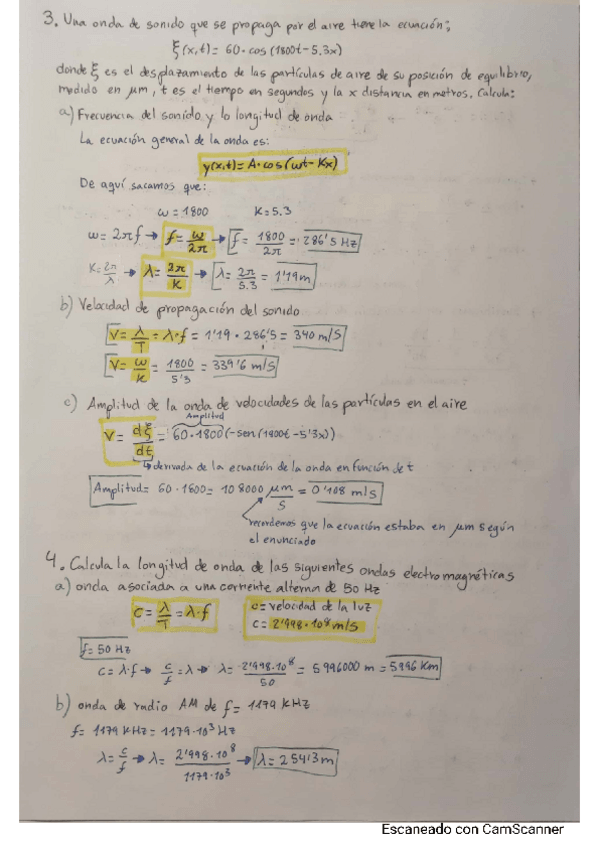 3. Una onda de sonido que se propaga por el aire tiene la ecuación:
ξ(x,t) = 60·cos(1800t-5.3x)
donde ξ es el desplazamiento de las partículas de aire de su posición de equilibrio,
medido en μm, t es el tiempo en segundos y la x distancia en metros. Calcula:
a) Frecuencia del sonido y la longitud de onda
La ecuación general de la onda es:
y(x,t) = A·cos(ωt-Kx)
De aquí sacamos que:
ω = 1800 K = 5.3
ω = 2πf → f = ω/2π → f = 1800/2π = 286'5 Hz
K = 2π/λ → λ = 2π/K → λ = 2π/5.3 = 1'19 m
b) Velocidad de propagación del sonido
V = λ/T = λ·f = 1'19 · 286'5 = 340 m/s
V = ω/K = 1800/5'3 = 339'6 m/s
c) Amplitud de la onda de velocidades de las partículas en el aire
Amplitud
V = dξ/dt = 60·1800(-sen(1800t-5'3x))
↳ derivada de la ecuación de la onda en función de t
Amplitud = 60·1800 = 108000 μm/s = 0'108 m/s
recordemos que la ecuación estaba en μm según
el enunciado
4. Calcula la longitud de onda de las siguientes ondas electromagnéticas
a) onda asociada a una corriente alterna de 50 Hz
C = λ/T = λ·f c = velocidad de la luz
c = 2'998·10⁸ m/s
f = 50 Hz
c = λ·f → c/f = λ → λ = 2'998·10⁸/50 = 5996000 m = 5996 Km
b) onda de radio AM de f = 1179 KHz
f = 1179 KHz = 1179·10³ Hz
λ = c/f → λ = 2'998·10⁸/1179·10³ → λ = 254'3 m
Escaneado con CamScanner